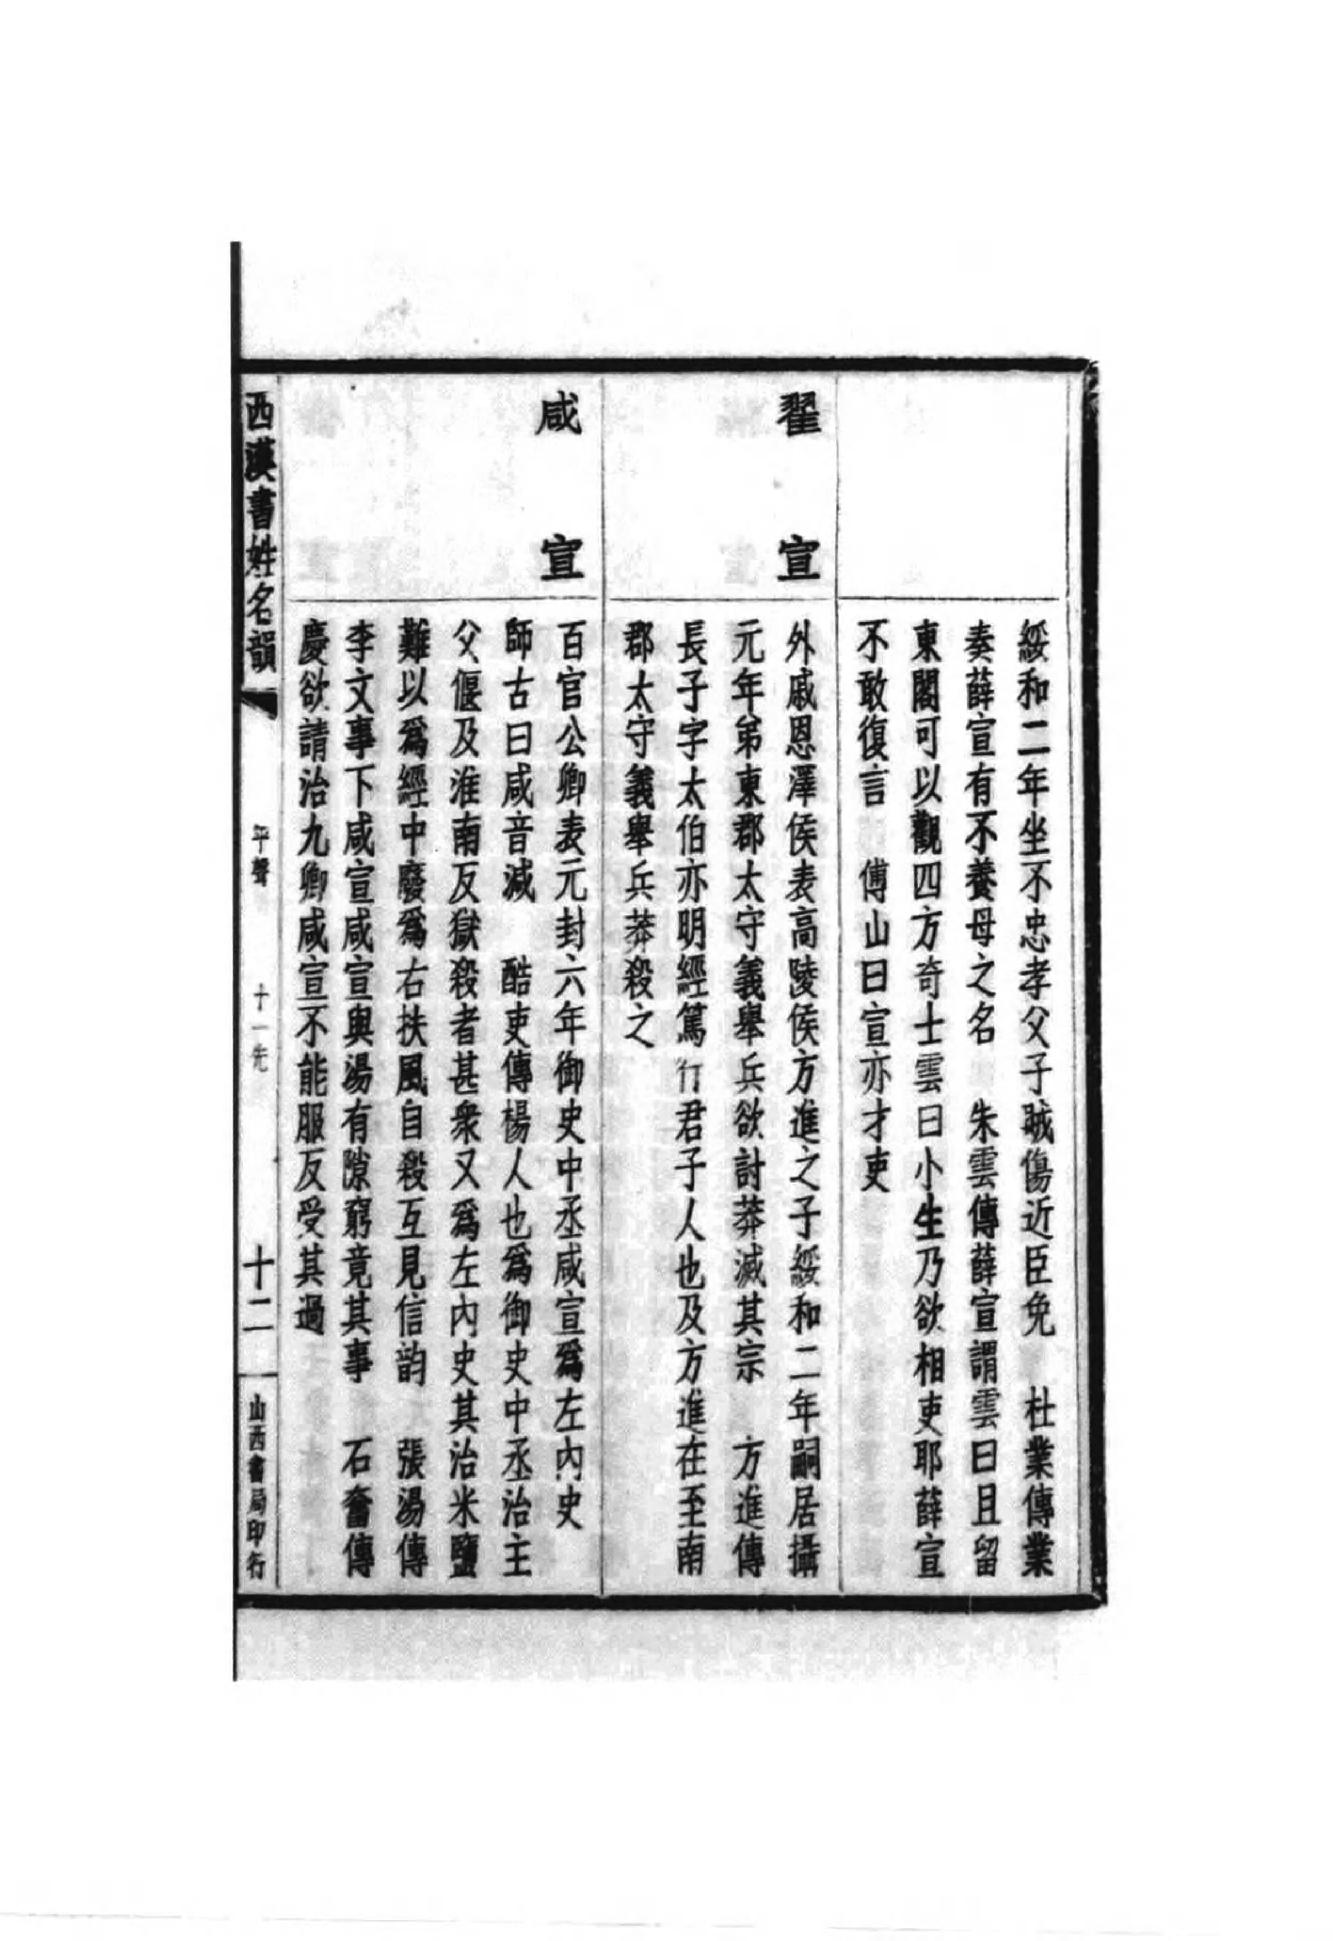 綏和二年坐不忠孝父子賊傷近臣免　杜業傳業
奏薛宣有不養母之名　朱雲傳薛宣謂雲曰且留
東閣可以觀四方奇士雲曰小生乃欲相吏耶薛宣
不敢復言　傅山曰宣亦才吏
翟宣
外戚恩澤侯表高陵侯方進之子綏和二年嗣居攝
元年弟東郡太守義舉兵欲討莽滅其宗　方進傳
長子字太伯亦明經篤行君子人也及方進在至南
郡太守義舉兵莽殺之
咸宣
百官公卿表元封六年御史中丞咸宣爲左內史
師古曰咸音減　酷吏傳楊人也爲御史中丞治主
父偃及淮南反獄殺者甚衆又爲左內史其治米鹽
難以爲經中廢爲右扶風自殺互見信韵　張湯傳
李文事下咸宣咸宣與湯有隙窮竟其事　石奮傳
慶欲請治九卿咸宣不能服反受其過
西漢書姓名韻　平聲　十一先　十二　山西書局印行